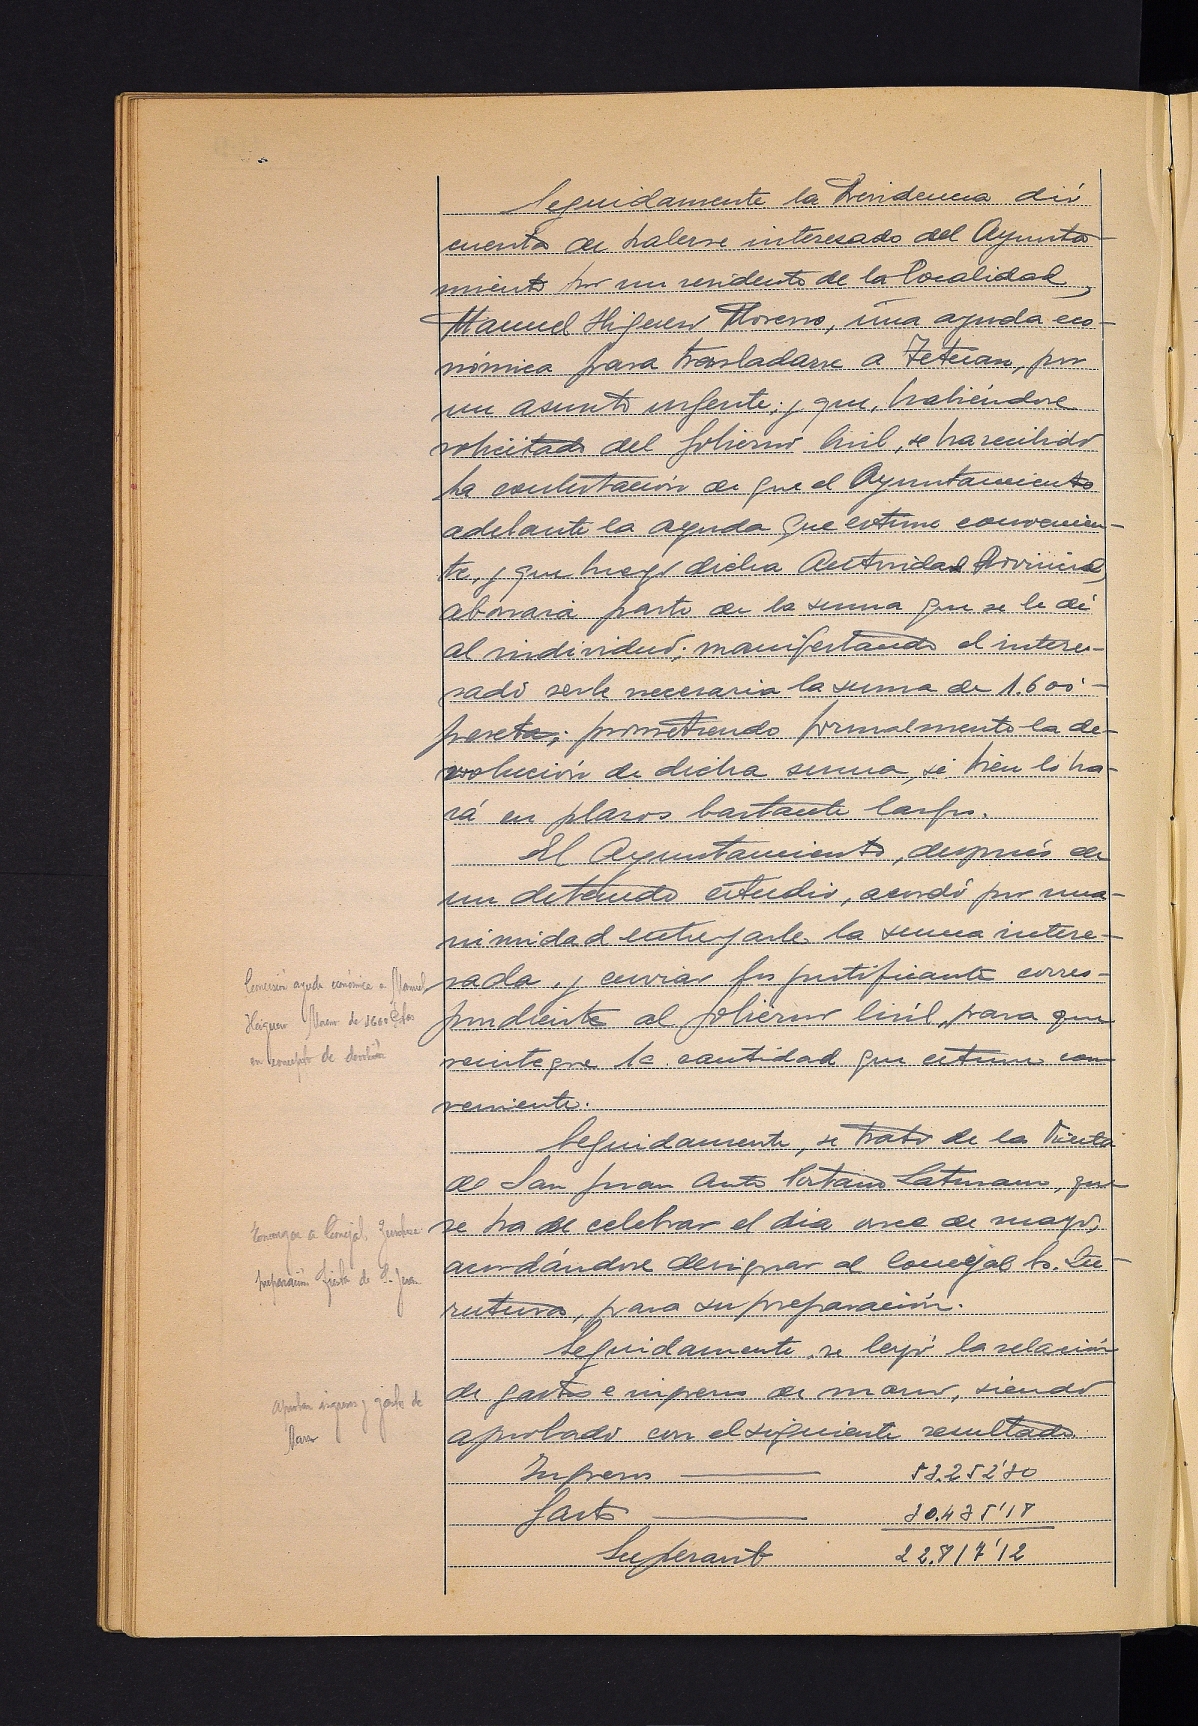 Seguidamente la Presidencia dió
cuenta de haberse interesado del Ayunta-
miento por un residente de la localidad,
Manuel Higuero Moreno, una ayuda eco-
nómica para trasladarse a Tetuan, por
un asunto urgente; y que, habiéndose
solicitado del Gobierno Civil, se ha recibido
la contestación de que el Ayuntamiento
adelante la ayuda que estime convenien-
te, y que luego dicha Autoridad Provincial,
abonará parte de la suma que se le dé
al individuo; manifestando el intere-
sado serle necesaria la suma de 1.600'-
pesetas; prometiendo formalmente la de-
volución de dicha suma, si bien lo ha-
rá en plazos bastante largos.
El Ayuntamiento, después de
un detenido estudio, acordó por una-
nimidad entregarle la suma intere-
sada, y enviar los justificante corres-
pondiente al Gobierno Civil, para que
reintegre la cantidad que estime con
veniente.
Seguidamente, se trató de la Fiesta
de San Juan Ante Portam Latinam, que
se ha de celebrar el día once de mayo,
acordándose designar al Concejal Sr.
para su preparación.
Seguidamente, se leyó la relación
de gastos e ingresos de marzo, siendo
aprobado con el siguiente resultado
Ingresos ——— 53.252'30
Gastos ——— 30.435'18
Superavit 22.817'12
Concesión ayuda económica a Manuel
Higuero Moreno de 1600 Ptas
en concepto de
a Concejal,
preparación fiesta de S. Juan
Aprobar ingresos y gastos de
Marzo